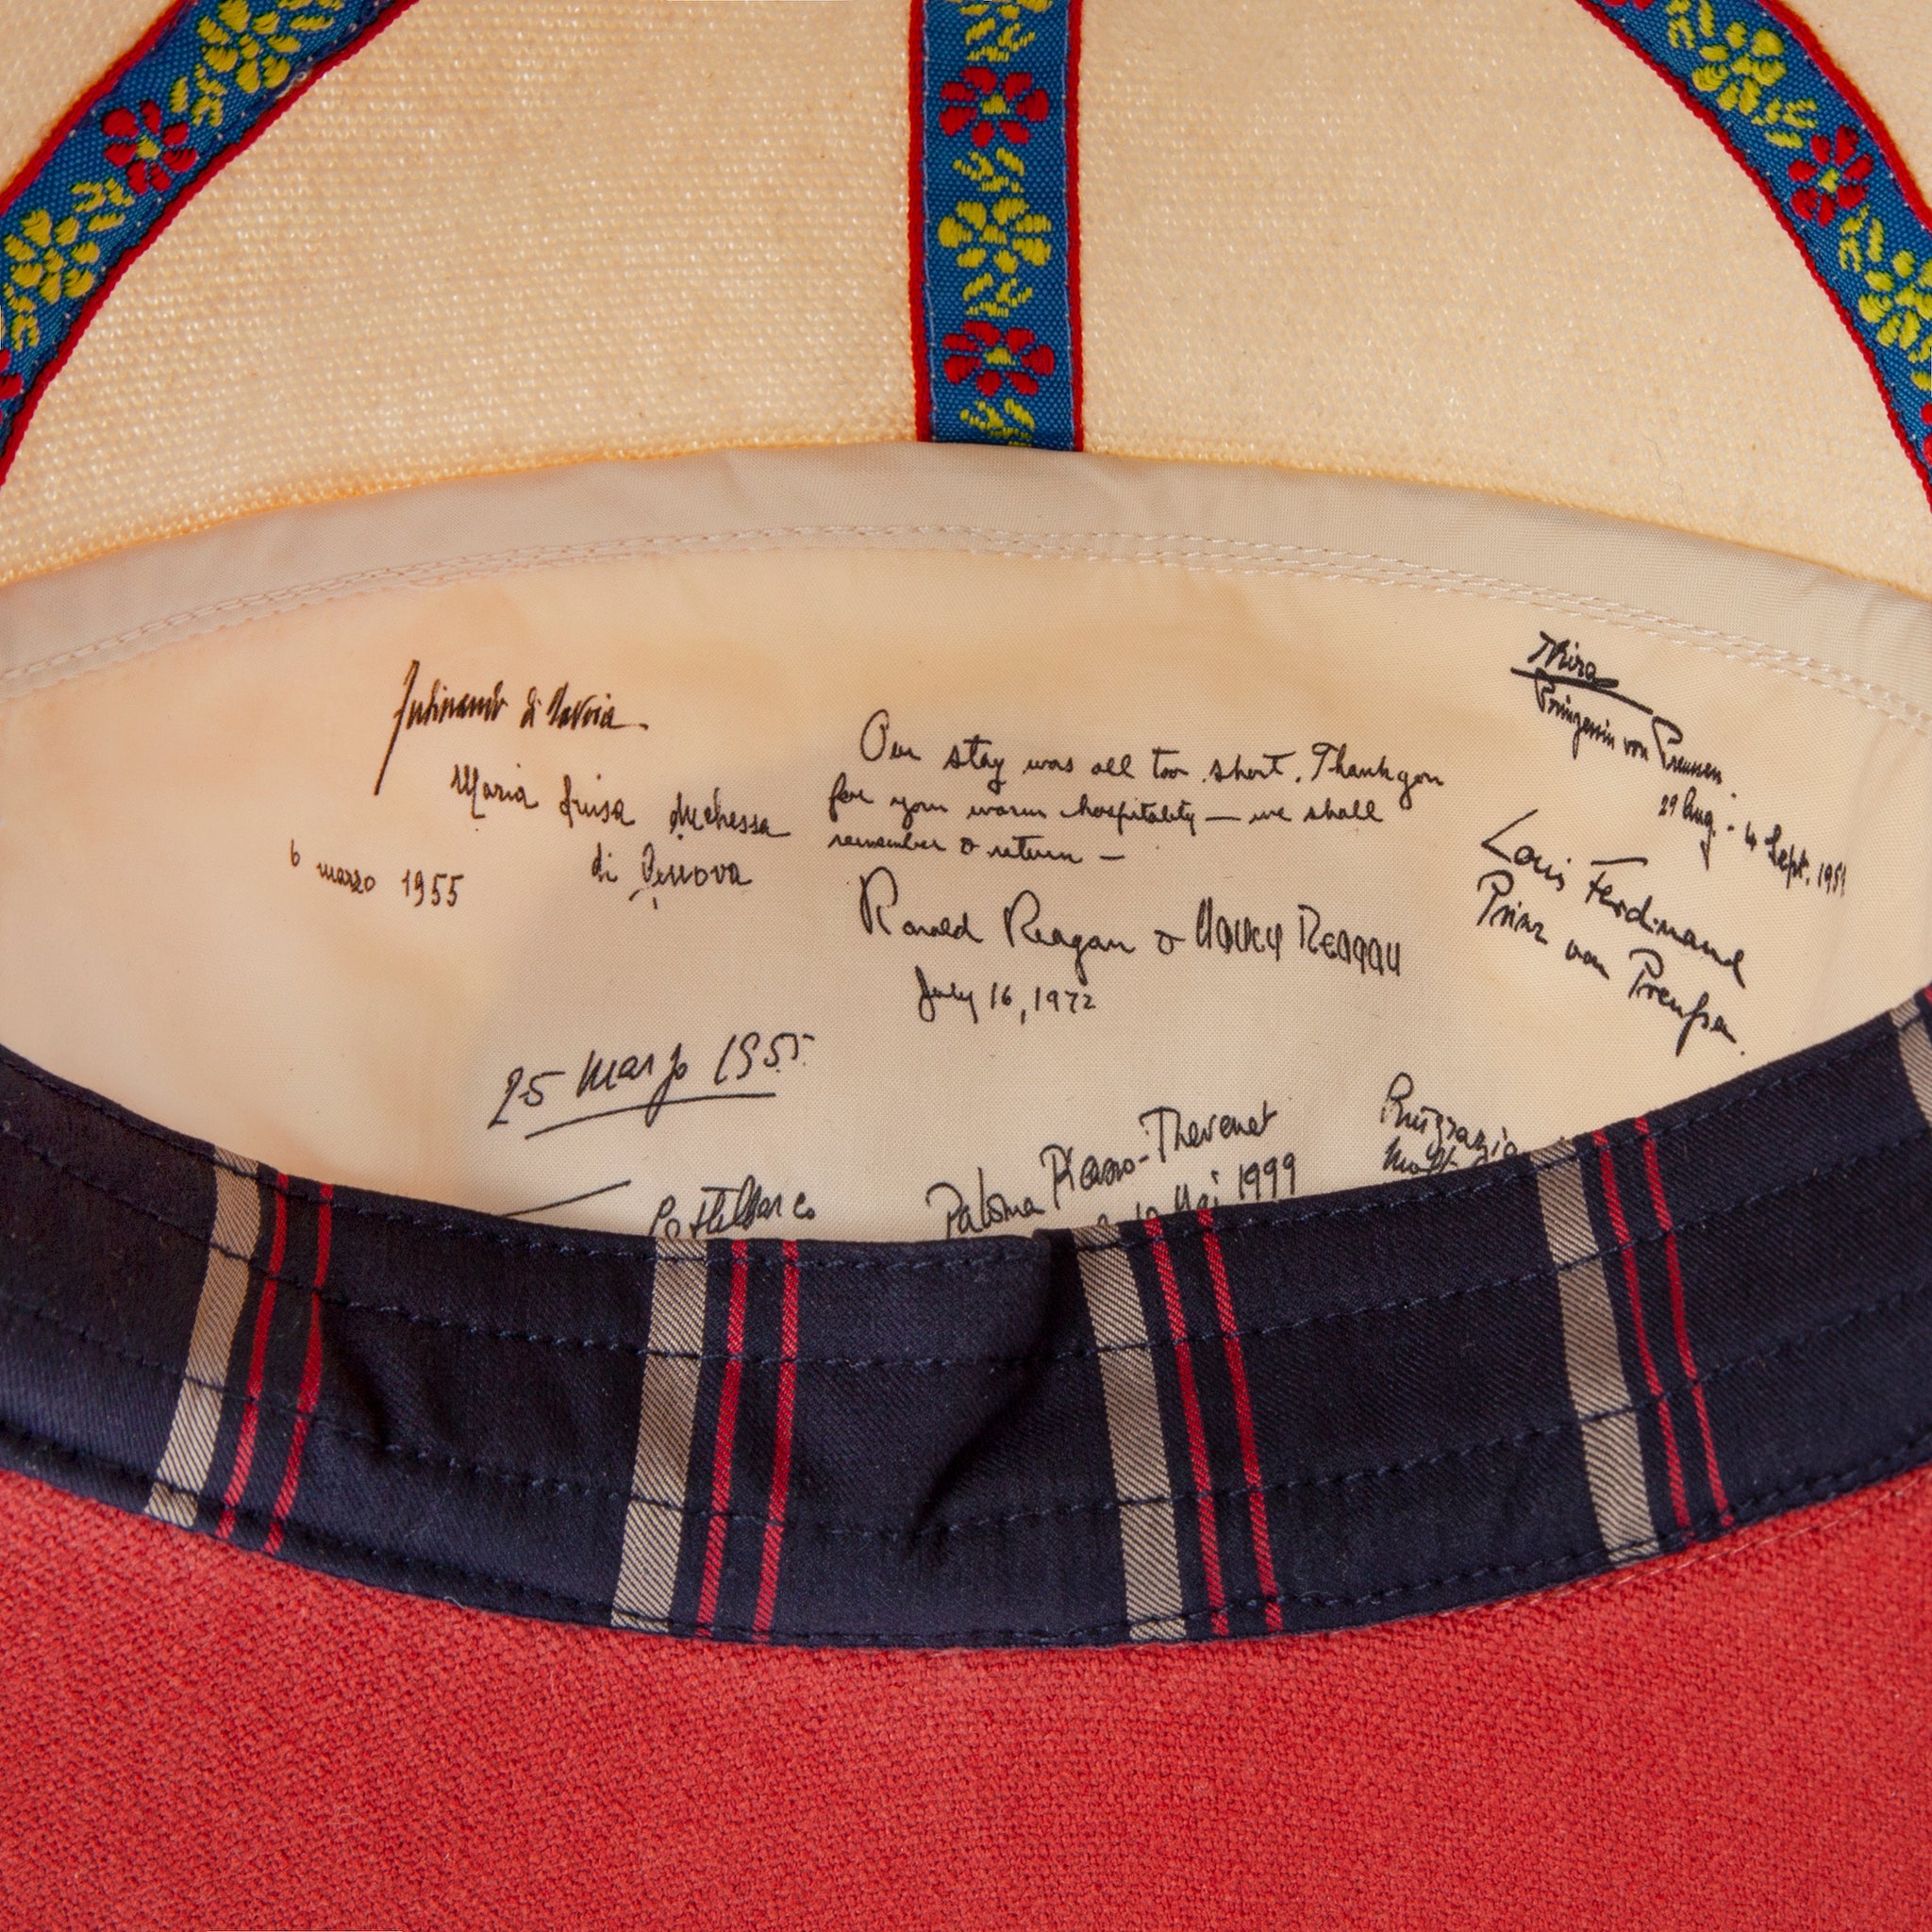 Ferdinando di Savoia
Maria Luisa duchessa
di Genova
6 marzo 1955
Our stay was all too short. Thank you
for your warm hospitality — we shall
remember & return —
Ronald Reagan & Nancy Reagan
July 16, 1972
Kira
Prinzessin von Preussen.
29 Aug. - 4 Sept. 1951
Louis Ferdinand
Prinz von Preußen.
25 marzo 1955
Castelbarco
Paloma Picasso-Thevenet
Mai 1999
Ringrazio
molto